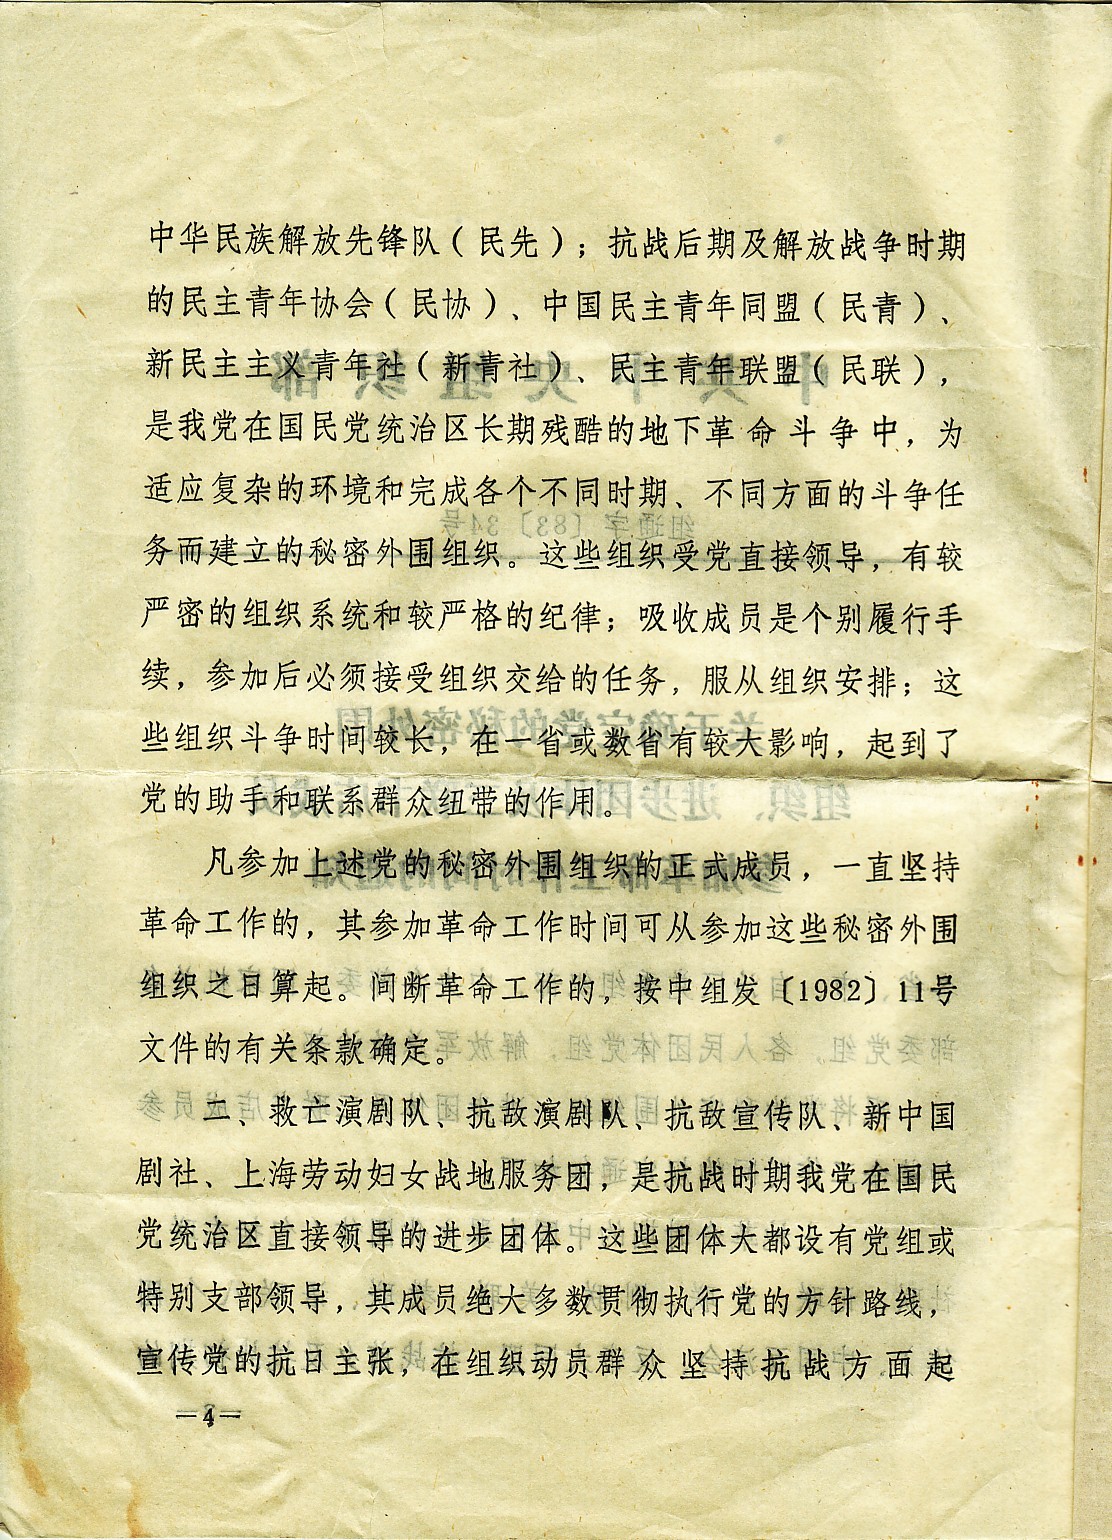 中华民族解放先锋队（民先）；抗战后期及解放战争时期
的民主青年协会（民协）、中国民主青年同盟（民青）、
新民主主义青年社（新青社）、民主青年联盟（民联），
是我党在国民党统治区长期残酷的地下革命斗争中，为
适应复杂的环境和完成各个不同时期、不同方面的斗争任
务而建立的秘密外围组织。这些组织受党直接领导，有较
严密的组织系统和较严格的纪律；吸收成员是个别履行手
续，参加后必须接受组织交给的任务，服从组织安排；这
些组织斗争时间较长，在一省或数省有较大影响，起到了
党的助手和联系群众纽带的作用。
凡参加上述党的秘密外围组织的正式成员，一直坚持
革命工作的，其参加革命工作时间可从参加这些秘密外围
组织之日算起。间断革命工作的，按中组发〔1982〕11号
文件的有关条款确定。
二、救亡演剧队、抗敌演剧队、抗敌宣传队、新中国
剧社、上海劳动妇女战地服务团，是抗战时期我党在国民
党统治区直接领导的进步团体。这些团体大都设有党组或
特别支部领导，其成员绝大多数贯彻执行党的方针路线，
宣传党的抗日主张，在组织动员群众坚持抗战方面起
—4—